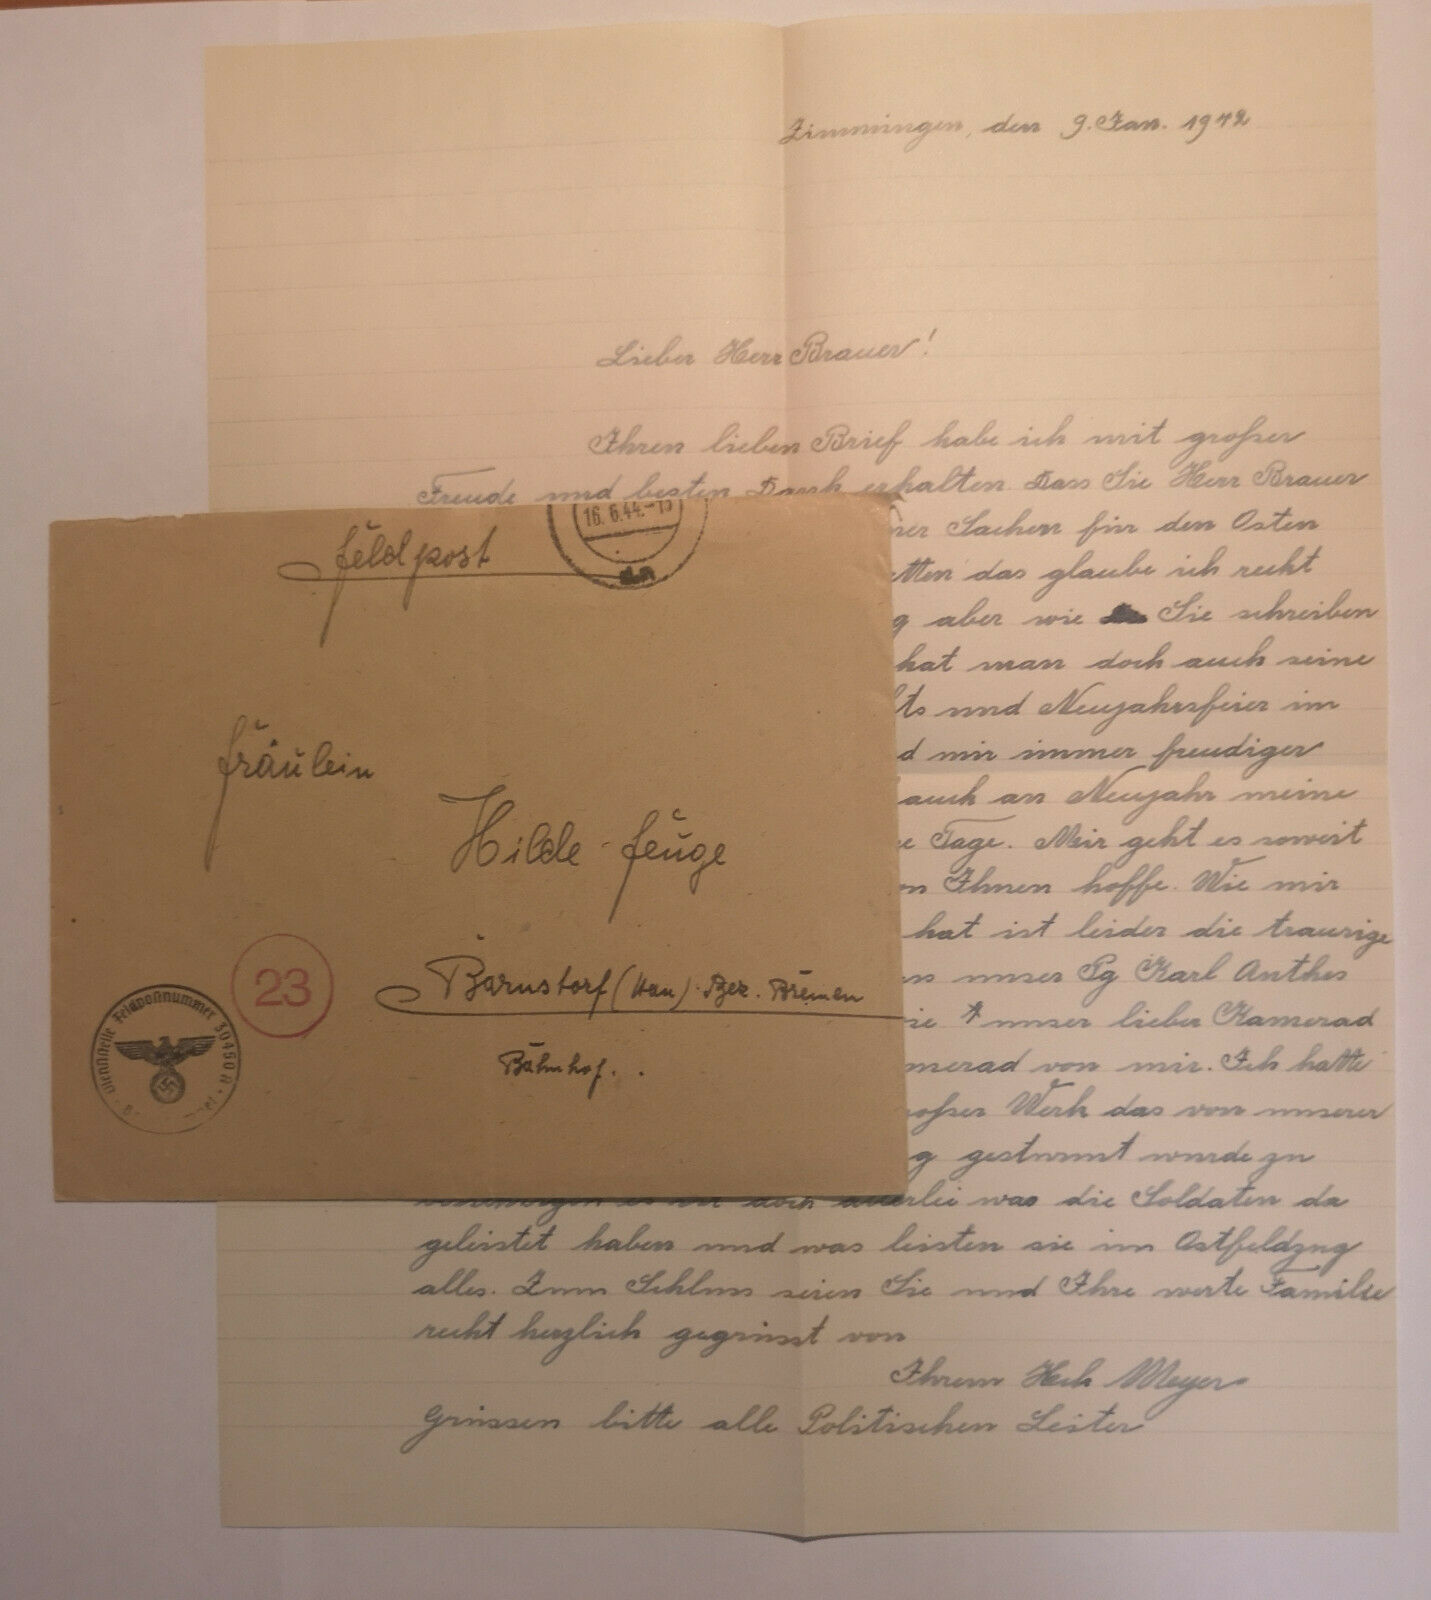 Zimmingen, den 9. Jan. 1942
Lieber Herr Brauer!
Ihren lieben Brief habe ich mit großer
Freude und besten Dank erhalten. Dass Sie Herr Brauer
Sachen für den Osten
das glaube ich recht
aber wie Sie schreiben
hat man doch auch seine
und Neujahrsfeier im
mir immer freudiger
auch an Neujahr meine
Tage. Mir geht es soweit
Ihnen hoffe. Wie mir
hat ist leider die traurige
unser Pg Karl Anthes
unser lieber Kamerad
von mir. Ich hatte
Werk das von unserer
gesturmt wurde zu
was die Soldaten da
geleistet haben und was leisten sie im Ostfeldzug
alles. Zum Schluss seien Sie und Ihre werte Familie
recht herzlich gegrüsst von
Ihrem Hch Meyer
Grüssen bitte alle Politischen Leiter
Feldpost
16.6.44.-
Fräulein
Hilde Feuge
Barnstorf (Han) Bez. Bremen
Bahnhof.
23
Dienststelle Feldpostnummer 30450